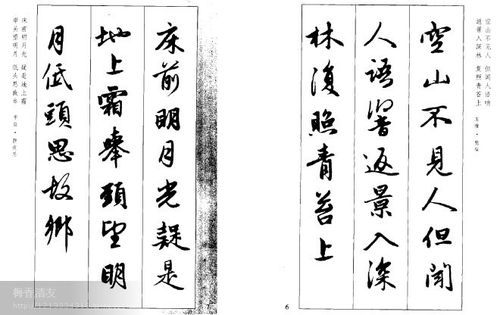 空山不見人 但聞人語響
返景入深林 復照青苔上
王維・鹿柴
空山不見人但聞
人語響返景入深
林復照青苔上
6
床前明月光疑是
地上霜舉頭望明
月低頭思故鄉
7
床前明月光 疑是地上霜
舉頭望明月 低頭思故鄉
李白・靜夜思